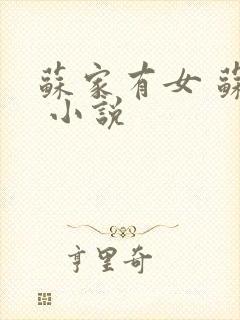 蘇家有女 蘇
小說
亨里奇